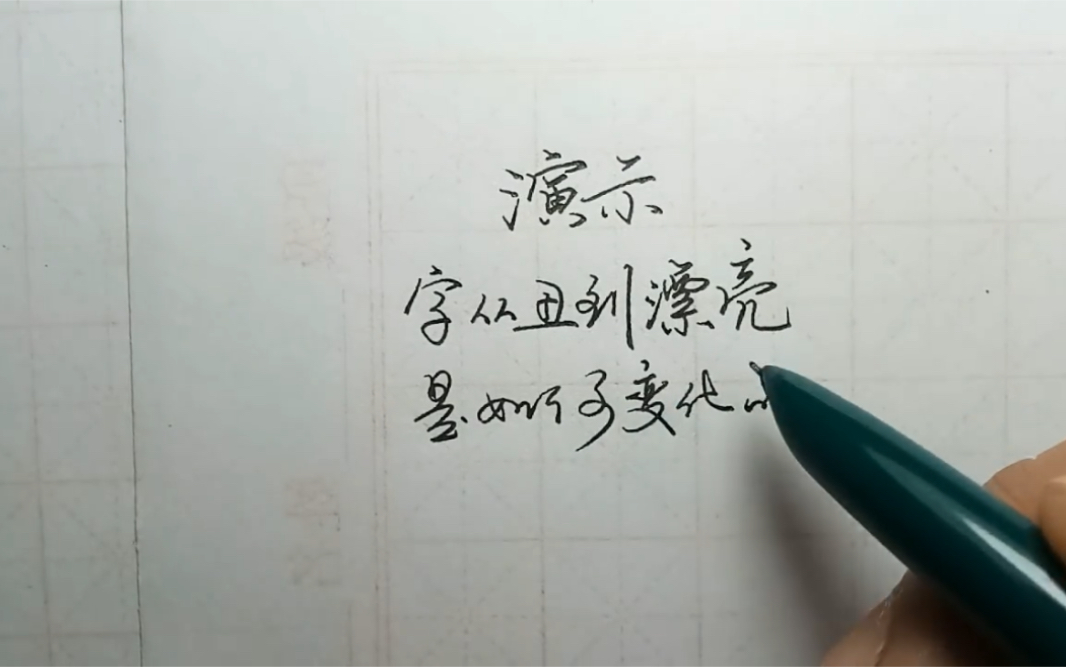 演示
字从丑到漂亮
是如何变化